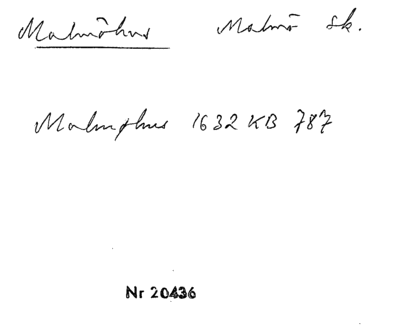 Malmöhus Malmö Sk.
Malmøhus 1632 KB 787
Nr 20436